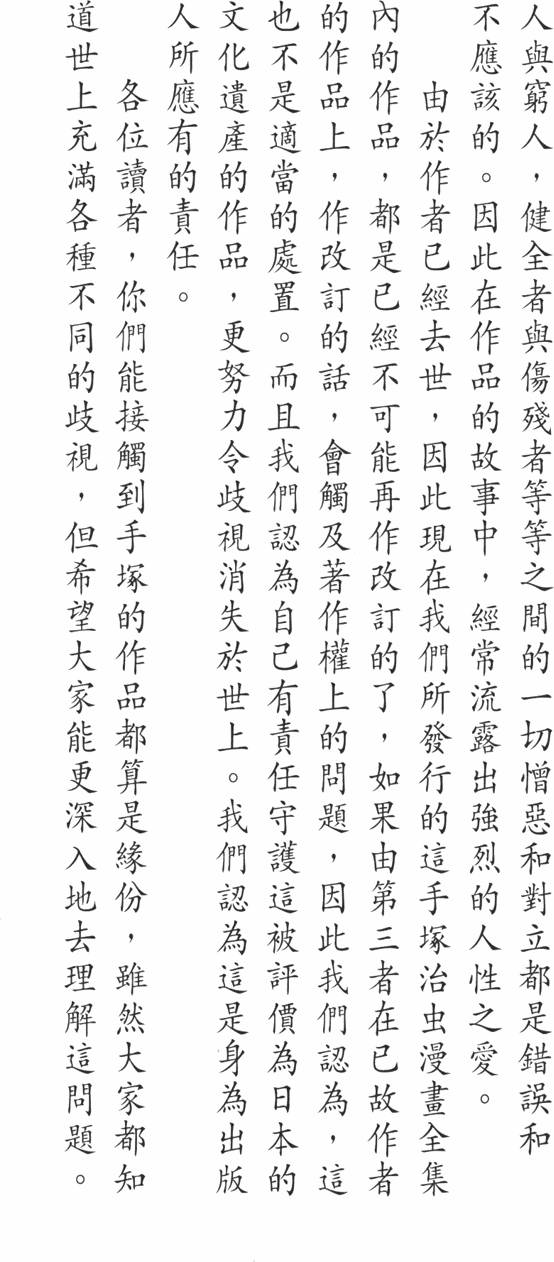 人與窮人，健全者與傷殘者等等之間的一切憎惡和對立都是錯誤和
不應該的。因此在作品的故事中，經常流露出強烈的人性之愛。
由於作者已經去世，因此現在我們所發行的這手塚治虫漫畫全集
內的作品，都是已經不可能再作改訂的了，如果由第三者在已故作者
的作品上，作改訂的話，會觸及著作權上的問題，因此我們認為，這
也不是適當的處置。而且我們認為自己有責任守護這被評價為日本的
文化遺產的作品，更努力令歧視消失於世上。我們認為這是身為出版
人所應有的責任。
各位讀者，你們能接觸到手塚的作品都算是緣份，雖然大家都知
道世上充滿各種不同的歧視，但希望大家能更深入地去理解這問題。